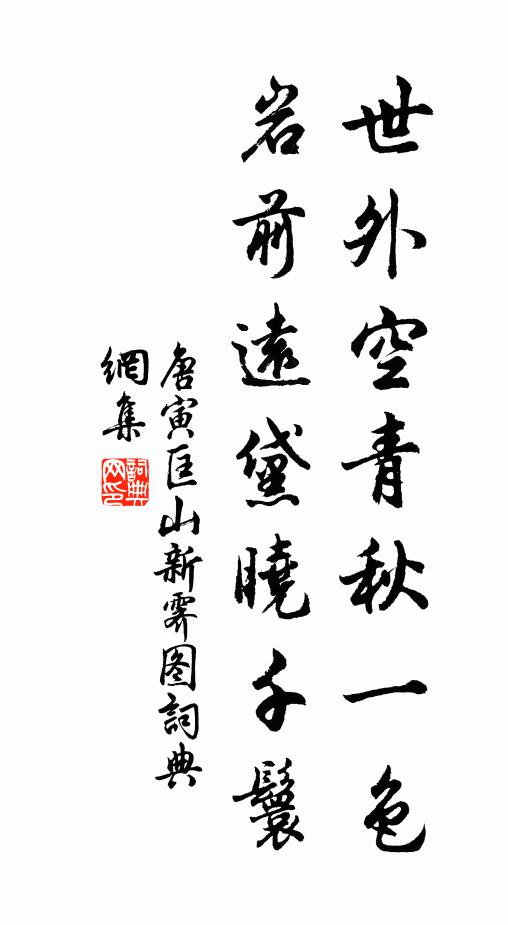 世外空青秋一色
岩前遠黛曉千鬟
唐寅匡山新霽图詞典
網集
詞典網印